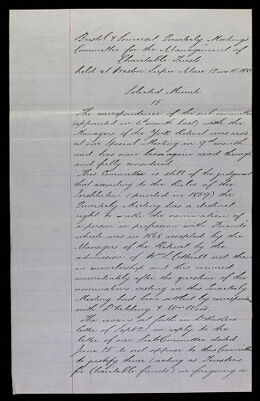 Bristol & Somerset Quarterly Meetings
Committee for the Management of
Charitable Trusts
held at Weston Super Mare
Selected Minute
15
The correspondence of the sub committee
appointed in 6 month last with the
Managers of the York Retreat was read
at our Special Meeting in 9th month
and has now been again read through
and fully considered.
This Committee is still of the judgment
that according to the Rules of the
Institution (printed in 1869) the
Quarterly Meeting has a distinct
right to make the nomination of
a person in profession with Friends
which was in 1868 accepted by the
Managers of the Retreat by the
admission of not then
in membership and this occurred
immediately after the question of the
nominations vesting in this Quarterly
Meeting had been settled by correspondence
with &
The reasons set forth in
letter of Sept in reply to the
letter of our Sub Committee dated
June 25 do not appear to this Committee
to justify them (acting as Trustees
for Charitable funds) in foregoing a